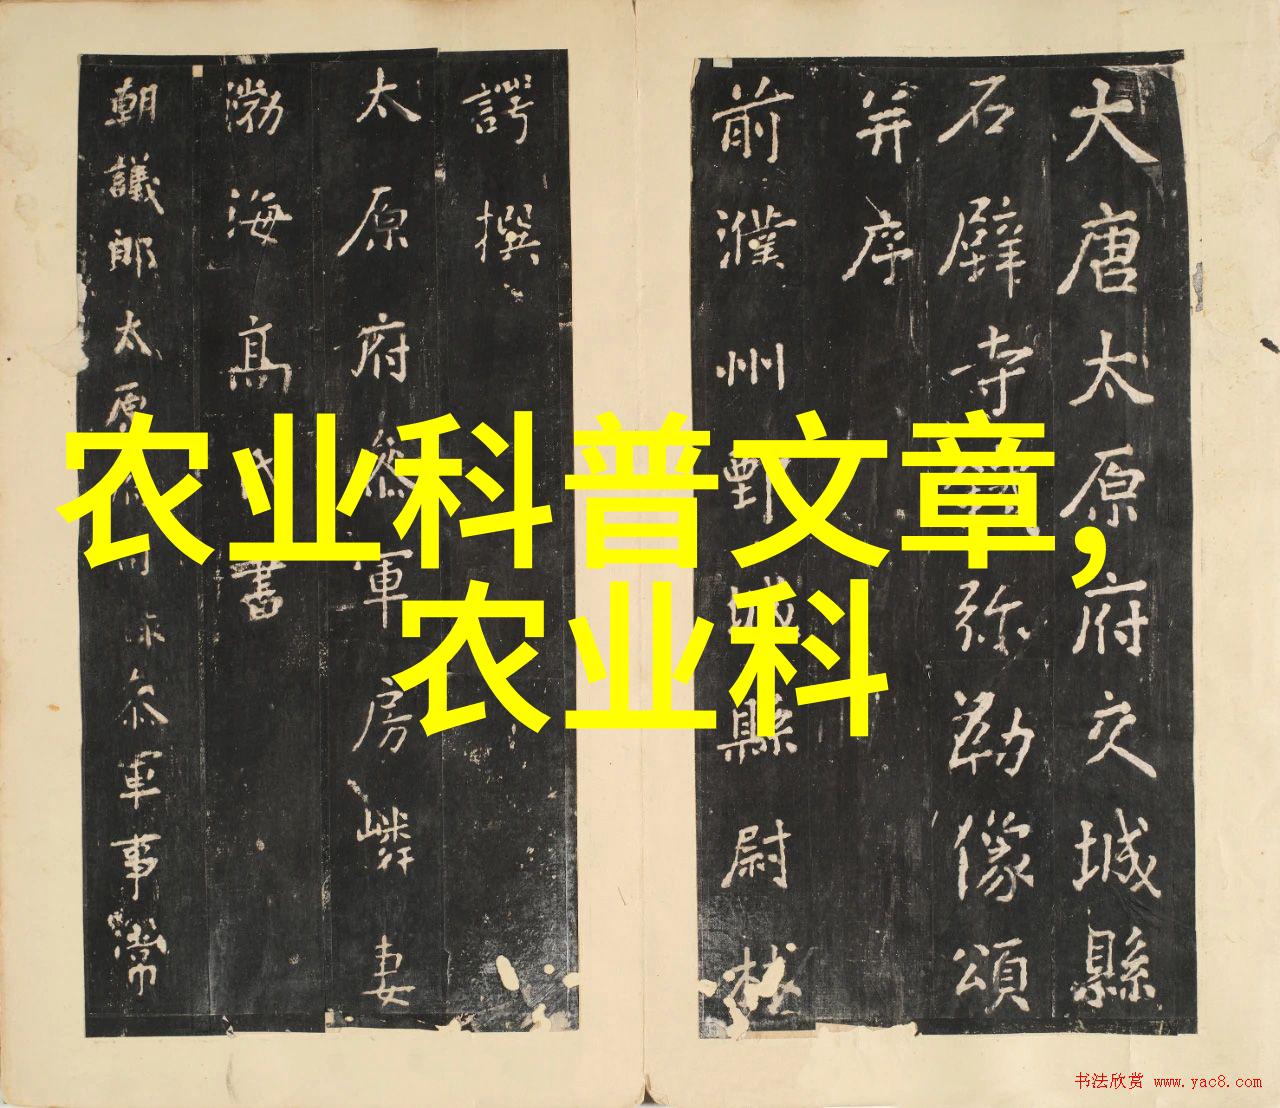 农业科普文章，
农业科
大唐太原府交城縣
石壁寺弥勒像頌
并序
前濮州鄄城縣尉林
諤撰
太原府叅軍房嶙妻
渤海髙氏書
朝議郎太原叅軍事常
书法欣赏 www.yac8.com